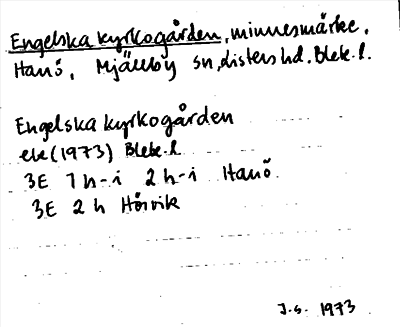 Engelska kyrkogården, minnesmärke,
Hanö, Mjällby sn, Listers hd. Blek. l.
Engelska kyrkogården
ek (1973) Blek. l
3E 1 h-i 2 h-i Hanö
3E 2 h Hörvik
J.S. 1973